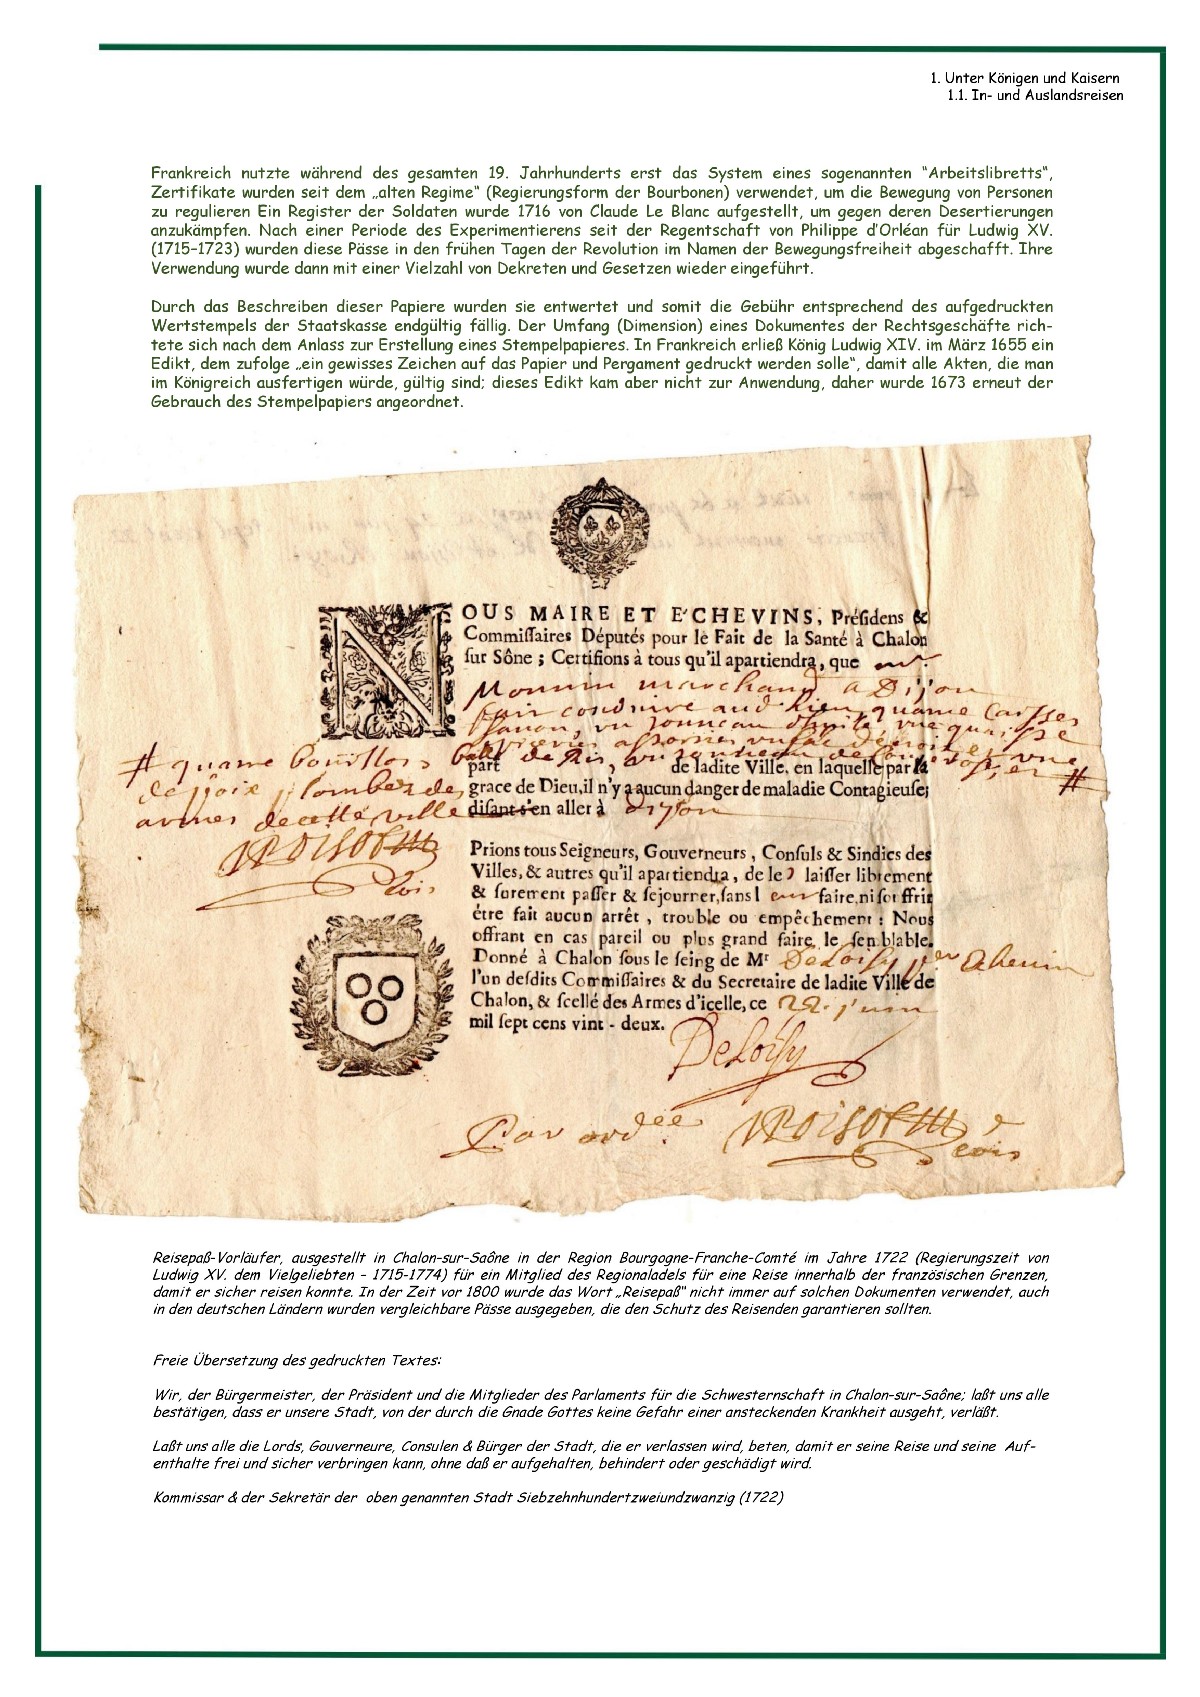 1. Unter Königen und Kaisern
1.1. In- und Auslandsreisen
Frankreich nutzte während des gesamten 19. Jahrhunderts erst das System eines sogenannten “Arbeitslibretts“,
Zertifikate wurden seit dem „alten Regime“ (Regierungsform der Bourbonen) verwendet, um die Bewegung von Personen
zu regulieren Ein Register der Soldaten wurde 1716 von Claude Le Blanc aufgestellt, um gegen deren Desertierungen
anzukämpfen. Nach einer Periode des Experimentierens seit der Regentschaft von Philippe d’Orléan für Ludwig XV.
(1715–1723) wurden diese Pässe in den frühen Tagen der Revolution im Namen der Bewegungsfreiheit abgeschafft. Ihre
Verwendung wurde dann mit einer Vielzahl von Dekreten und Gesetzen wieder eingeführt.
Durch das Beschreiben dieser Papiere wurden sie entwertet und somit die Gebühr entsprechend des aufgedruckten
Wertstempels der Staatskasse endgültig fällig. Der Umfang (Dimension) eines Dokumentes der Rechtsgeschäfte rich-
tete sich nach dem Anlass zur Erstellung eines Stempelpapieres. In Frankreich erließ König Ludwig XIV. im März 1655 ein
Edikt, dem zufolge „ein gewisses Zeichen auf das Papier und Pergament gedruckt werden solle“, damit alle Akten, die man
im Königreich ausfertigen würde, gültig sind; dieses Edikt kam aber nicht zur Anwendung, daher wurde 1673 erneut der
Gebrauch des Stempelpapiers angeordnet.
NOUS MAIRE ET E'CHEVINS, Présidens &
Commissaires Députés pour le Fait de la Santé à Chalon
sur Sône ; Certifions à tous qu'il apartiendra, que mr.
Monnin marchand a Dijon
fait conduire aud. lieu quatre caisses
savon, un tonneau
# quatre
part de ladite Ville, en laquelle par la
de poix plombez des grace de Dieu, il n'y a aucun danger de maladie Contagieuse;
armes de cette ville disant s'en aller à Dijon
Prions tous Seigneurs, Gouverneurs, Consuls & Sindics des
Villes, & autres qu'il apartiendra, de le laisser librement
& surement passer & sejourner, sans l eur faire, ni souffrir
étre fait aucun arrét, trouble ou empêchement : Nous
offrant en cas pareil ou plus grand faire le semblable.
Donné à Chalon sous le seing de Mr Deloisy
l'un desdits Commissaires & du Secretaire de ladite Ville de
Chalon, & scellé des Armes d'icelle, ce 22. juin
mil sept cens vint - deux.
Deloisy
Par
Reisepaß-Vorläufer, ausgestellt in Chalon–sur–Saône in der Region Bourgogne-Franche-Comté im Jahre 1722 (Regierungszeit von
Ludwig XV. dem Vielgeliebten – 1715-1774) für ein Mitglied des Regionaladels für eine Reise innerhalb der französischen Grenzen,
damit er sicher reisen konnte. In der Zeit vor 1800 wurde das Wort „Reisepaß“ nicht immer auf solchen Dokumenten verwendet, auch
in den deutschen Ländern wurden vergleichbare Pässe ausgegeben, die den Schutz des Reisenden garantieren sollten.
Freie Übersetzung des gedruckten Textes:
Wir, der Bürgermeister, der Präsident und die Mitglieder des Parlaments für die Schwesternschaft in Chalon–sur–Saône; laßt uns alle
bestätigen, dass er unsere Stadt, von der durch die Gnade Gottes keine Gefahr einer ansteckenden Krankheit ausgeht, verläßt.
Laßt uns alle die Lords, Gouverneure, Consulen & Bürger der Stadt, die er verlassen wird, beten, damit er seine Reise und seine Auf-
enthalte frei und sicher verbringen kann, ohne daß er aufgehalten, behindert oder geschädigt wird.
Kommissar & der Sekretär der oben genannten Stadt Siebzehnhundertzweiundzwanzig (1722)